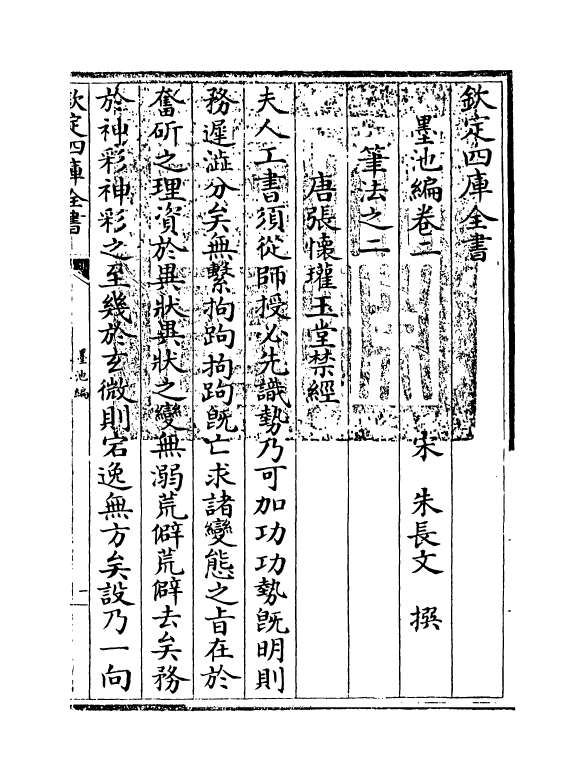 欽定四庫全書
墨池編卷二　宋　朱長文　撰
筆法之二
唐張懷瓘玉堂禁經
夫人工書須從師授必先識勢乃可加功功勢旣明則
務遲澁分矣無繫拘跔拘跔旣亡求諸變態之旨在於
奮斫之理資於異狀異狀之變無溺荒僻荒僻去矣務
於神彩神彩之至幾於玄微則宕逸無方矣設乃一向
欽定四庫全書
墨池編
一